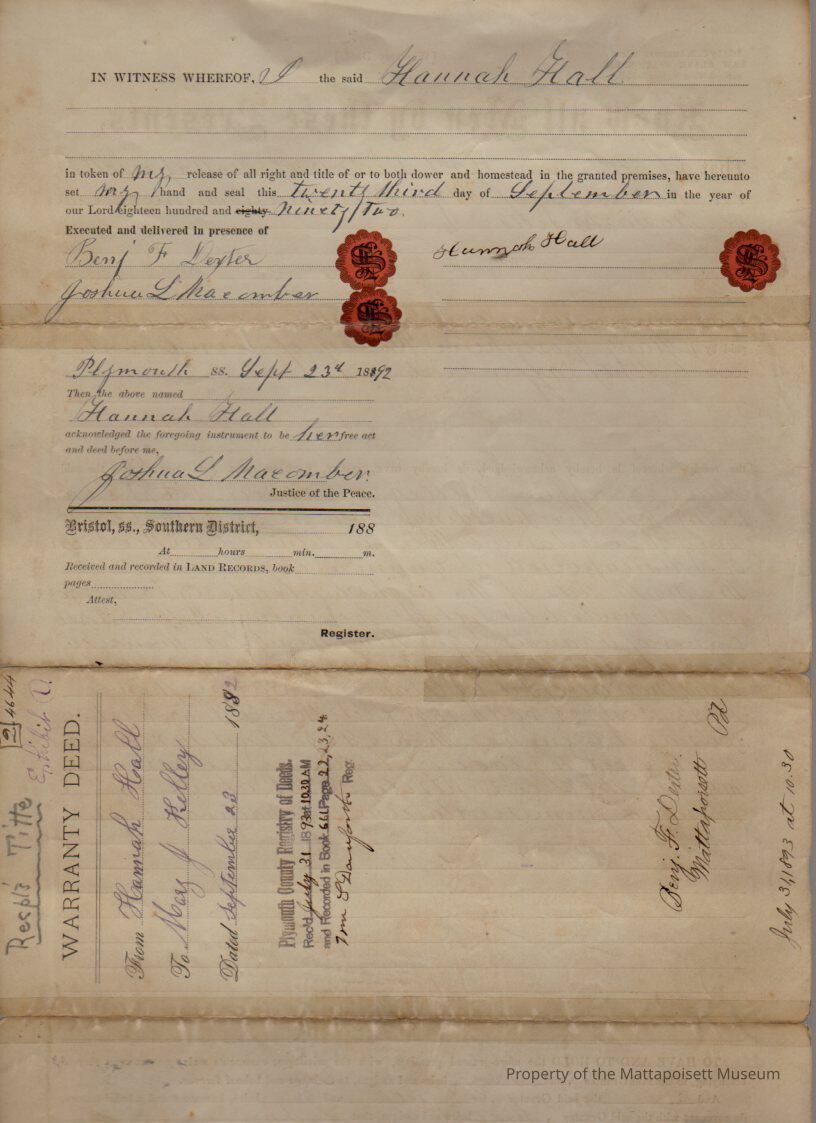 IN WITNESS WHEREOF, I the said Hannah Hall
in token of my release of all right and title of or to both dower and homestead in the granted premises, have hereunto
set my hand and seal this twenty third day of September in the year of
our Lord eighteen hundred and eighty Ninety/Two.
Executed and delivered in presence of
Benj F Dexter
Hannah Hall
Joshua L Macomber
Plymouth ss. Sept 23d 1892
Then the above named
Hannah Hall
acknowledged the foregoing instrument to be her free act
and deed before me,
Joshua L Macomber
Justice of the Peace.
Bristol, ss., Southern District, 188
At hours min. m.
Received and recorded in LAND RECORDS, book
pages
Attest,
Register.
4644
Exhibit
Resp's Title
WARRANTY DEED.
From Hannah Hall
To Mary J Kelley
Dated September 23 1892
Plymouth County Registry of Deeds.
Rec'd July 31 1893 at 10.30 A M
and Recorded in Book 661 Page 22, 23, 24
Wm S Danforth Reg.
Benj. F. Dexter.
Mattapoisett
Pd
July 31, 1893 at 10.30
Property of the Mattapoisett Museum